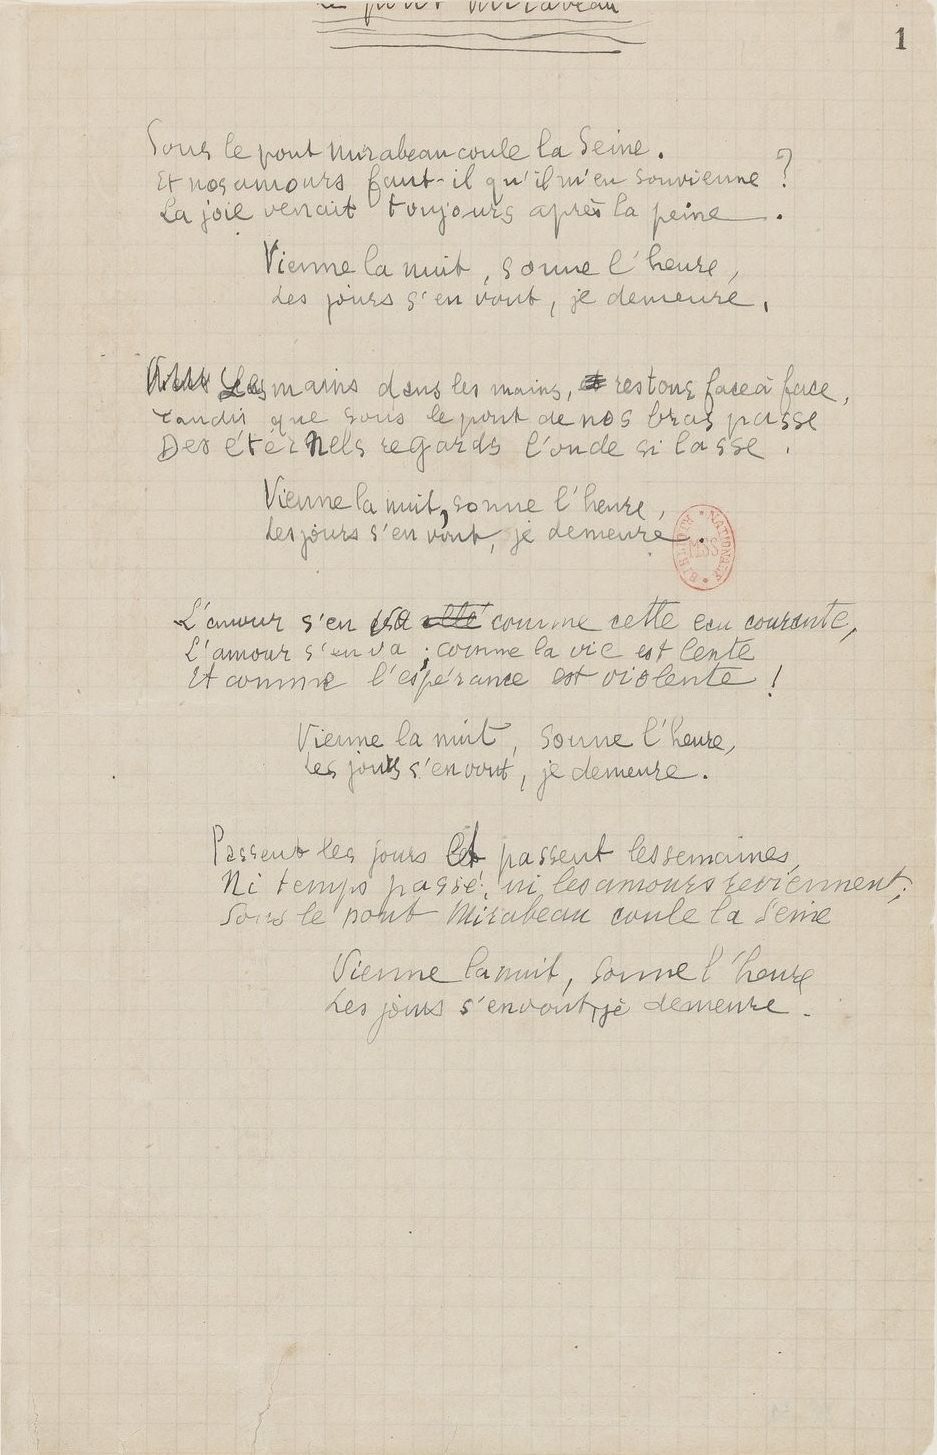 Le pont Mirabeau
1
Sous le pont Mirabeau coule la Seine.
Et nos amours, faut-il qu'il m'en souvienne ?
La joie venait toujours après la peine.
Vienne la nuit, sonne l'heure,
Les jours s'en vont, je demeure,
Les mains dans les mains, restons face à face,
Tandis que sous le pont de nos bras passe
Des éternels regards l'onde si lasse.
Vienne la nuit, sonne l'heure,
Les jours s'en vont, je demeure.
BIBLIOTH NATIONALE MSS
L'amour s'en va elle comme cette eau courante,
L'amour s'en va ; comme la vie est lente
Et comme l'espérance est violente !
Vienne la nuit, sonne l'heure,
Les jours s'en vont, je demeure.
Passent les jours et passent les semaines,
Ni temps passé, ni les amours reviennent;
Sous le pont Mirabeau coule la Seine
Vienne la nuit, sonne l'heure
Les jours s'en vont, je demeure.